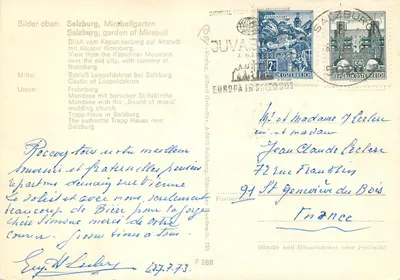 Bilder oben: Salzburg, Mirabellgarten
Salzburg, garden of Mirabell
Blick vom Kapuzinerberg auf Altstadt
mit Kloster Nonnberg
View from the Kapuzinerberg Mountain
over the old city, with nunnery of
Nonnberg
Mitte: Schloß Leopoldskron bei Salzburg
Castle of Leopoldskron
Unten: Frohnburg
Mondsee mit barocker Stiftskirche
Mondsee with the „Sound of music"
wedding church
Trapp-Haus in Salzburg
The authentic Trapp House near
Salzburg
JUVA
EUROPA
SALZBURG
REPUBLIK ÖSTERREICH
Recevez tous notre meilleur
souvenir et fraternelles pensées
repartons demain sur Vienne
Le soleil est avec nous, seulement
beaucoup de Bière pour la forge
chère Simone merci de votre
courrier. Grosses bises à tous.
27.7.73.
F 288
Mr et Madame J Leclerc
mr et madame
Jean Claude Leclerc
72 rue
91 St Geneviève des Bois
France
(Straße und Hausnummer oder Postfach)